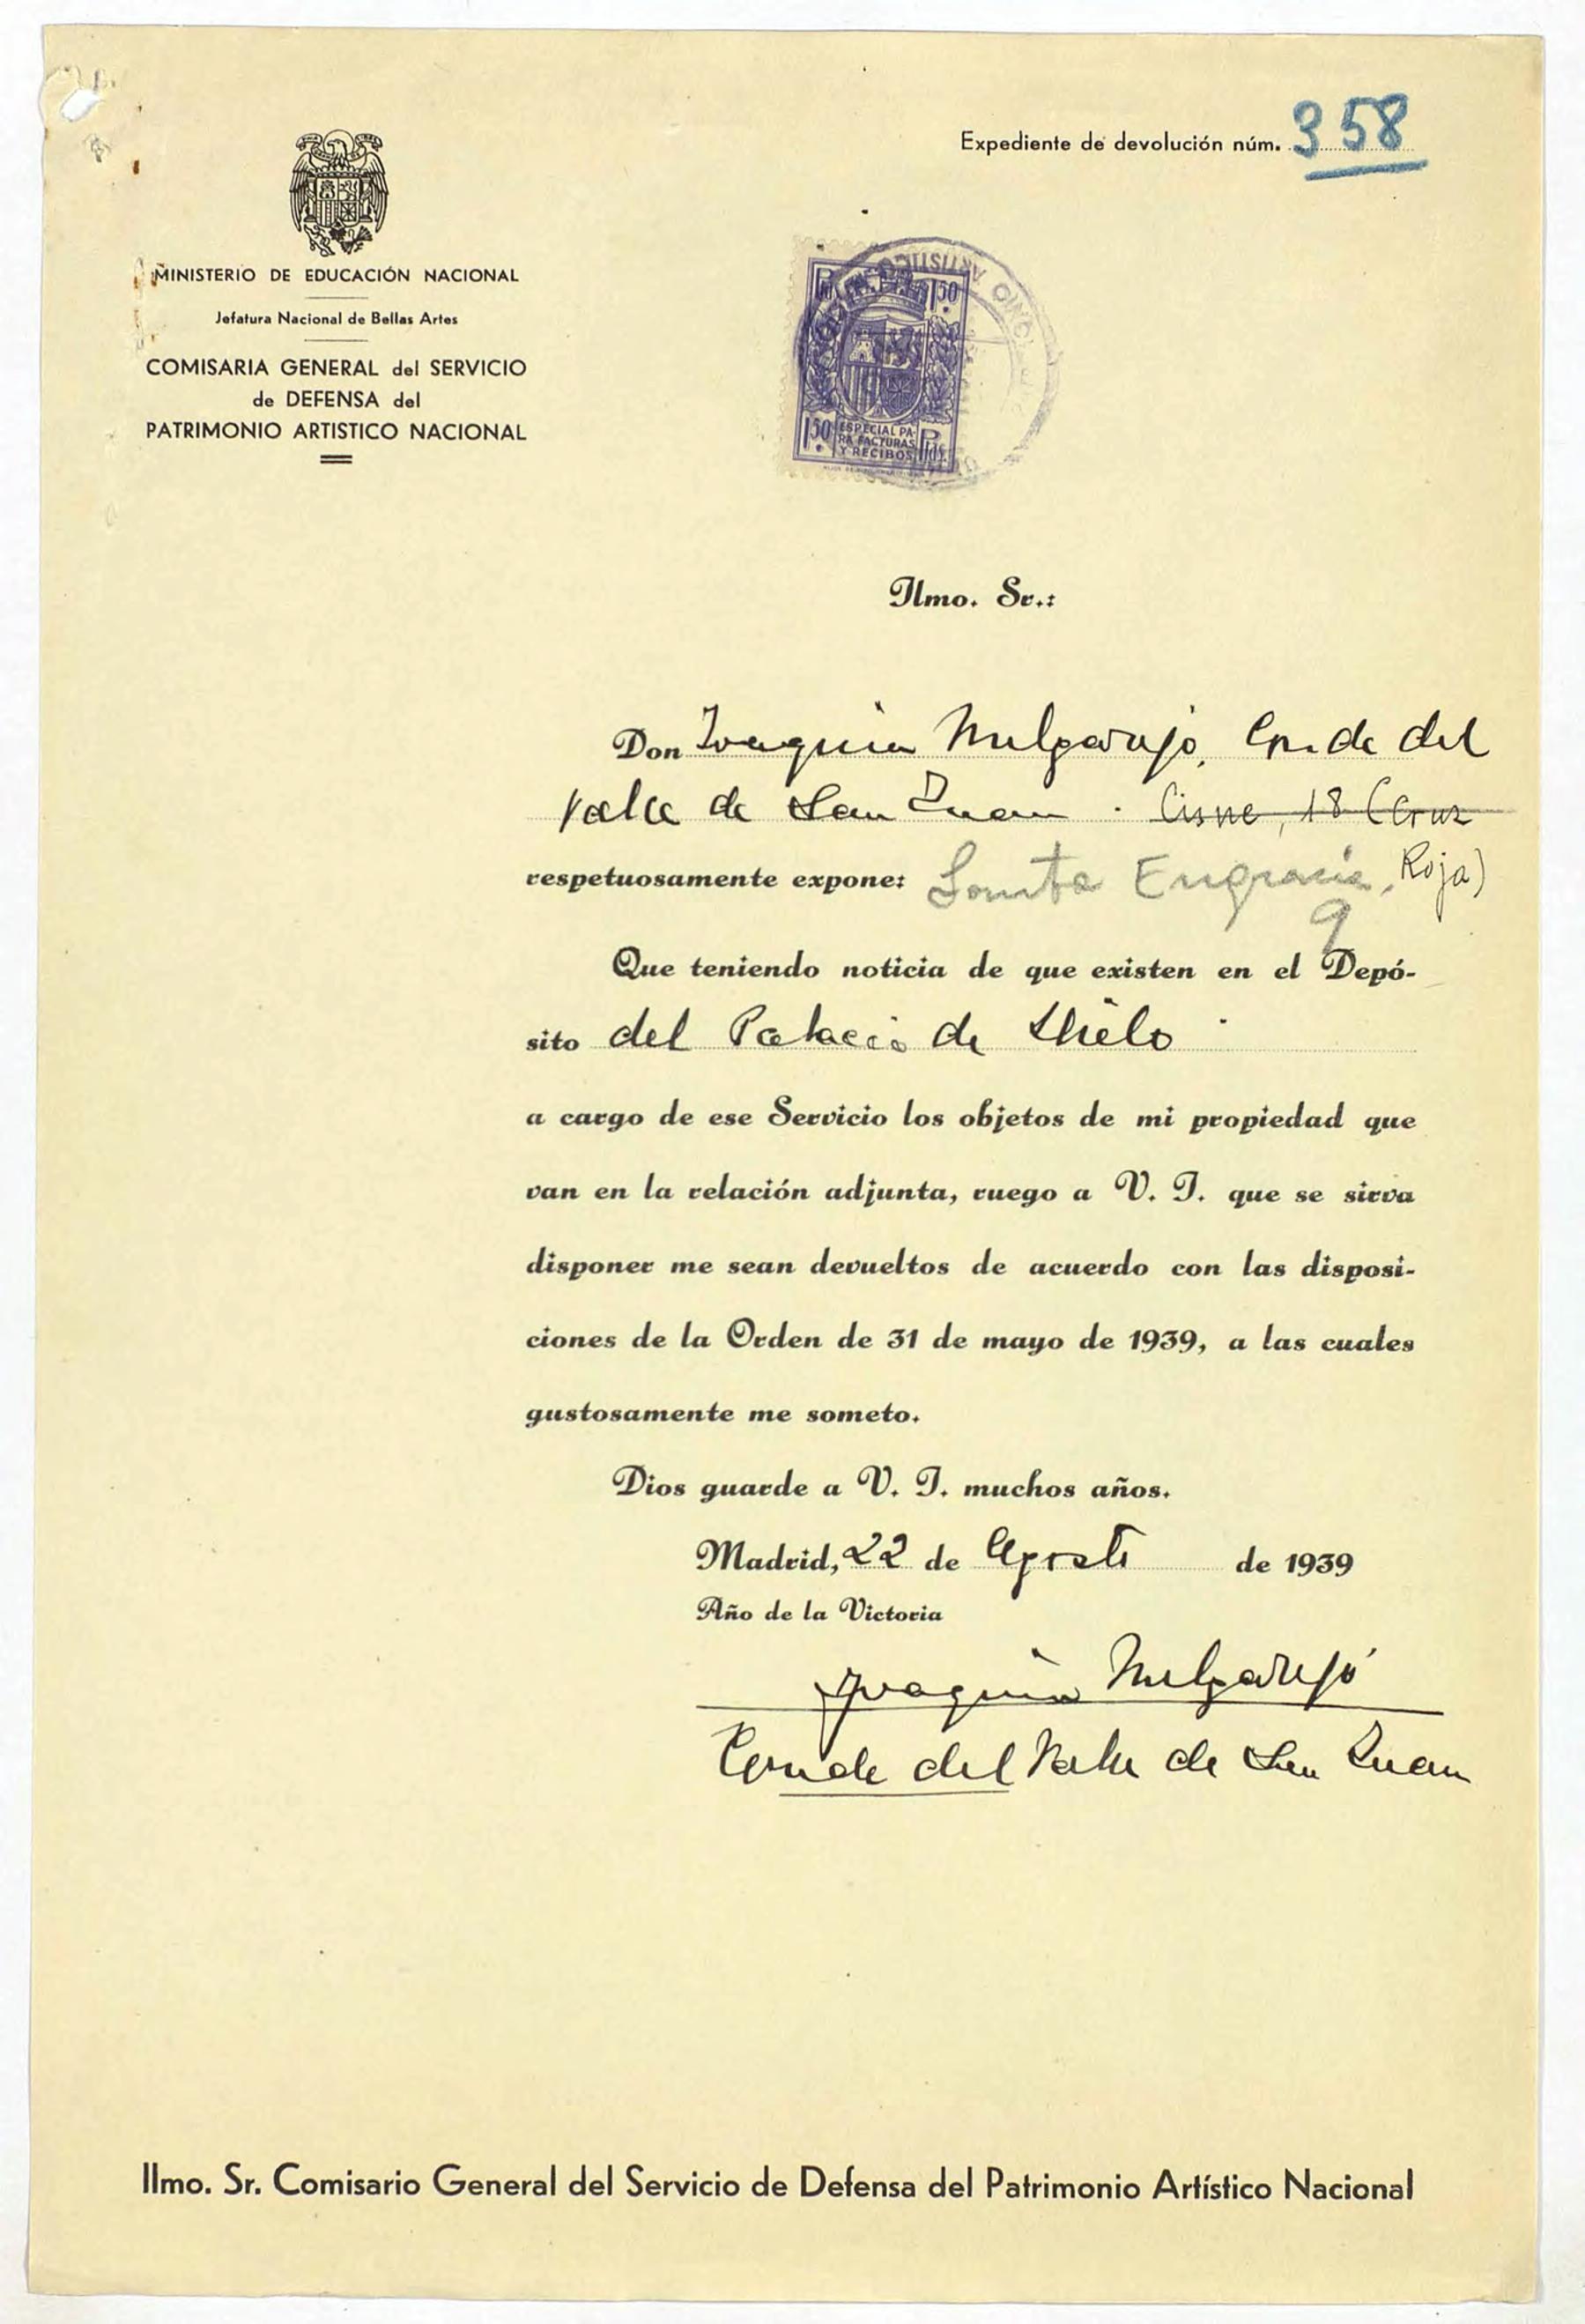 Expediente de devolución núm. 358
MINISTERIO DE EDUCACIÓN NACIONAL
Jefatura Nacional de Bellas Artes
COMISARIA GENERAL del SERVICIO
de DEFENSA del
PATRIMONIO ARTISTICO NACIONAL
1'50
1'50 ESPECIAL PA-
RA FACTURAS
Y RECIBOS Ptas.
ARTISTICO
Ilmo. Sr.:
Don Joaquin Melgarejo, Conde del
Valle de San Juan. Cisne, 18 (Cruz
respetuosamente expone: Santa Engracia, Roja)
9
Que teniendo noticia de que existen en el Depó-
sito del Palacio de
a cargo de ese Servicio los objetos de mi propiedad que
van en la relación adjunta, ruego a V. I. que se sirva
disponer me sean devueltos de acuerdo con las disposi-
ciones de la Orden de 31 de mayo de 1939, a las cuales
gustosamente me someto.
Dios guarde a V. I. muchos años.
Madrid, 22 de Agosto de 1939
Año de la Victoria
Joaquin Melgarejo
Conde del Valle de San Juan
Ilmo. Sr. Comisario General del Servicio de Defensa del Patrimonio Artístico Nacional